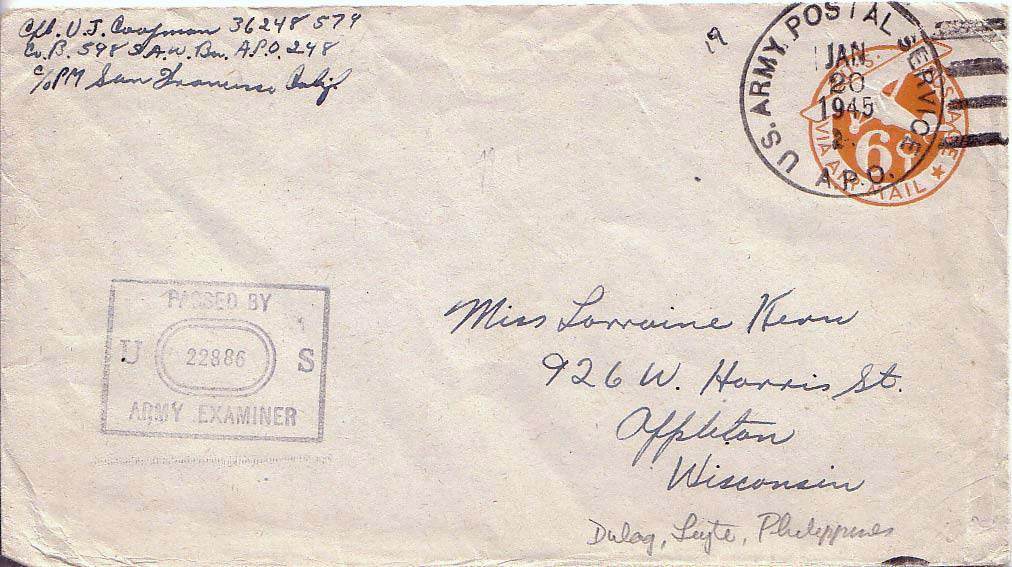 Cpl. V. J. Cooyman 36248579
Co. B. 598 S.A.W. Bn. A.P.O 248
c/o PM San Francisco Calif.
19
U.S. ARMY POSTAL SERVICE
A.P.O.
JAN
20
1945
U.S. POSTAGE
6¢
VIA AIR MAIL
PASSED BY
U 22886 S
ARMY EXAMINER
Miss Lorraine Kern
926 W. Harris St.
Appleton
Wisconsin
Dulag, Leyte, Philippines